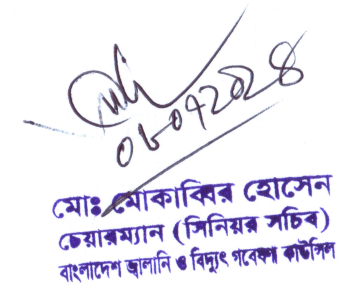 মোঃ মোকাব্বির হোসেন
চেয়ারম্যান (সিনিয়র সচিব)
বাংলাদেশ জ্বালানি ও বিদ্যুৎ গবেষণা কাউন্সিল